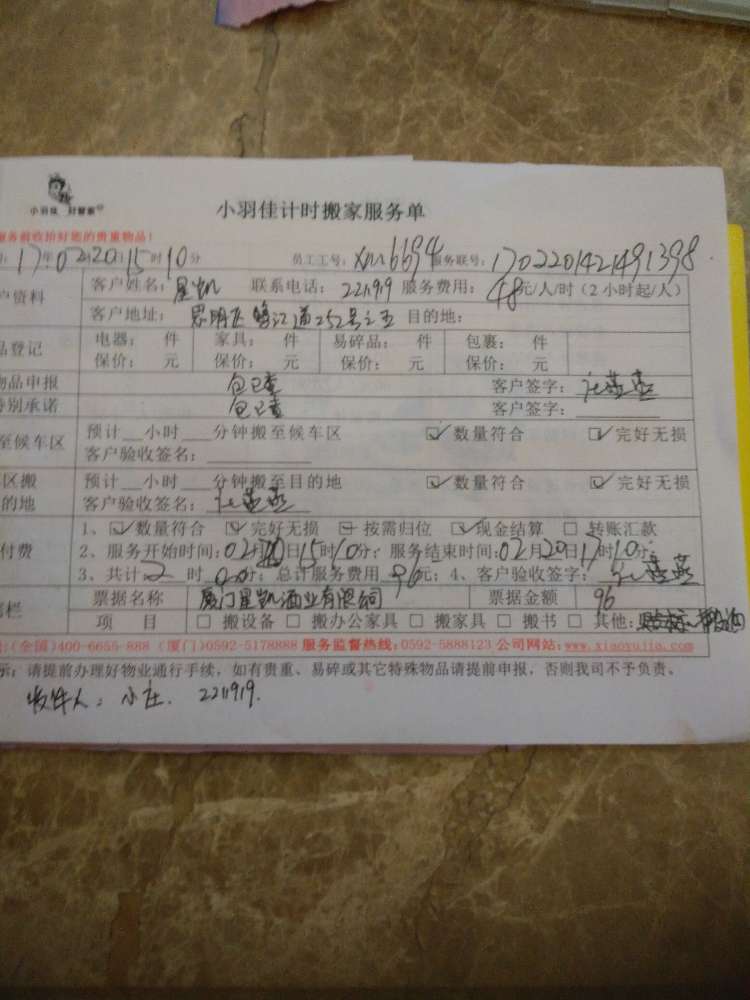 小羽佳 好管家
小羽佳计时搬家服务单
服务前收拾好您的贵重物品!
17年02月20日15时10分 员工工号: xm6694 服务联号: 1702201421491398
户资料 客户姓名: 星凯 联系电话: 2211919 服务费用: 48元/人/时(2小时起/人)
客户地址: 思明区鹭江道252号之五 目的地:
品登记 电器: 件 家具: 件 易碎品: 件 包裹: 件
保价: 元 保价: 元 保价: 元 保价: 元
物品申报 包已查 客户签字:
特别承诺 包已查 客户签字:
至候车区 预计__小时___分钟搬至候车区 ☑数量符合 ☑完好无损
客户验收签名:
区搬 预计__小时___分钟搬至目的地 ☑数量符合 ☑完好无损
的地 客户验收签名:
1、☑数量符合 ☑完好无损 按需归位 ☑现金结算 □ 转账汇款
付费 2、服务开始时间:02月20日15时10分; 服务结束时间:02月20日17时10分;
3、共计2时00分; 总计服务费用96元; 4、客户验收签字:
票据名称 厦门星凯酒业有限公司 票据金额 96
栏 项 目 □ 搬设备 □ 搬办公家具 □ 搬家具 □ 搬书 □ 其他:
(全国)400-6655-888 (厦门)0592-5178888 服务监督热线:0592-5888123 公司网站:www.xiaoyujia.com
示: 请提前办理好物业通行手续,如有贵重、易碎或其它特殊物品请提前申报,否则我司不予负责。
收件人: 小庄. 2211919.